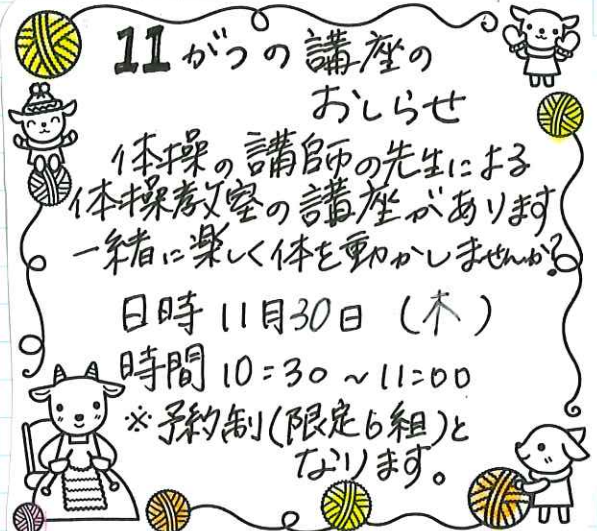 11がつの講座の
おしらせ
体操の講師の先生による
体操教室の講座があります
一緒に楽しく体を動かしませんか?
日時 11月30日(木)
時間 10:30~11:00
※予約制(限定6組)と
なります。